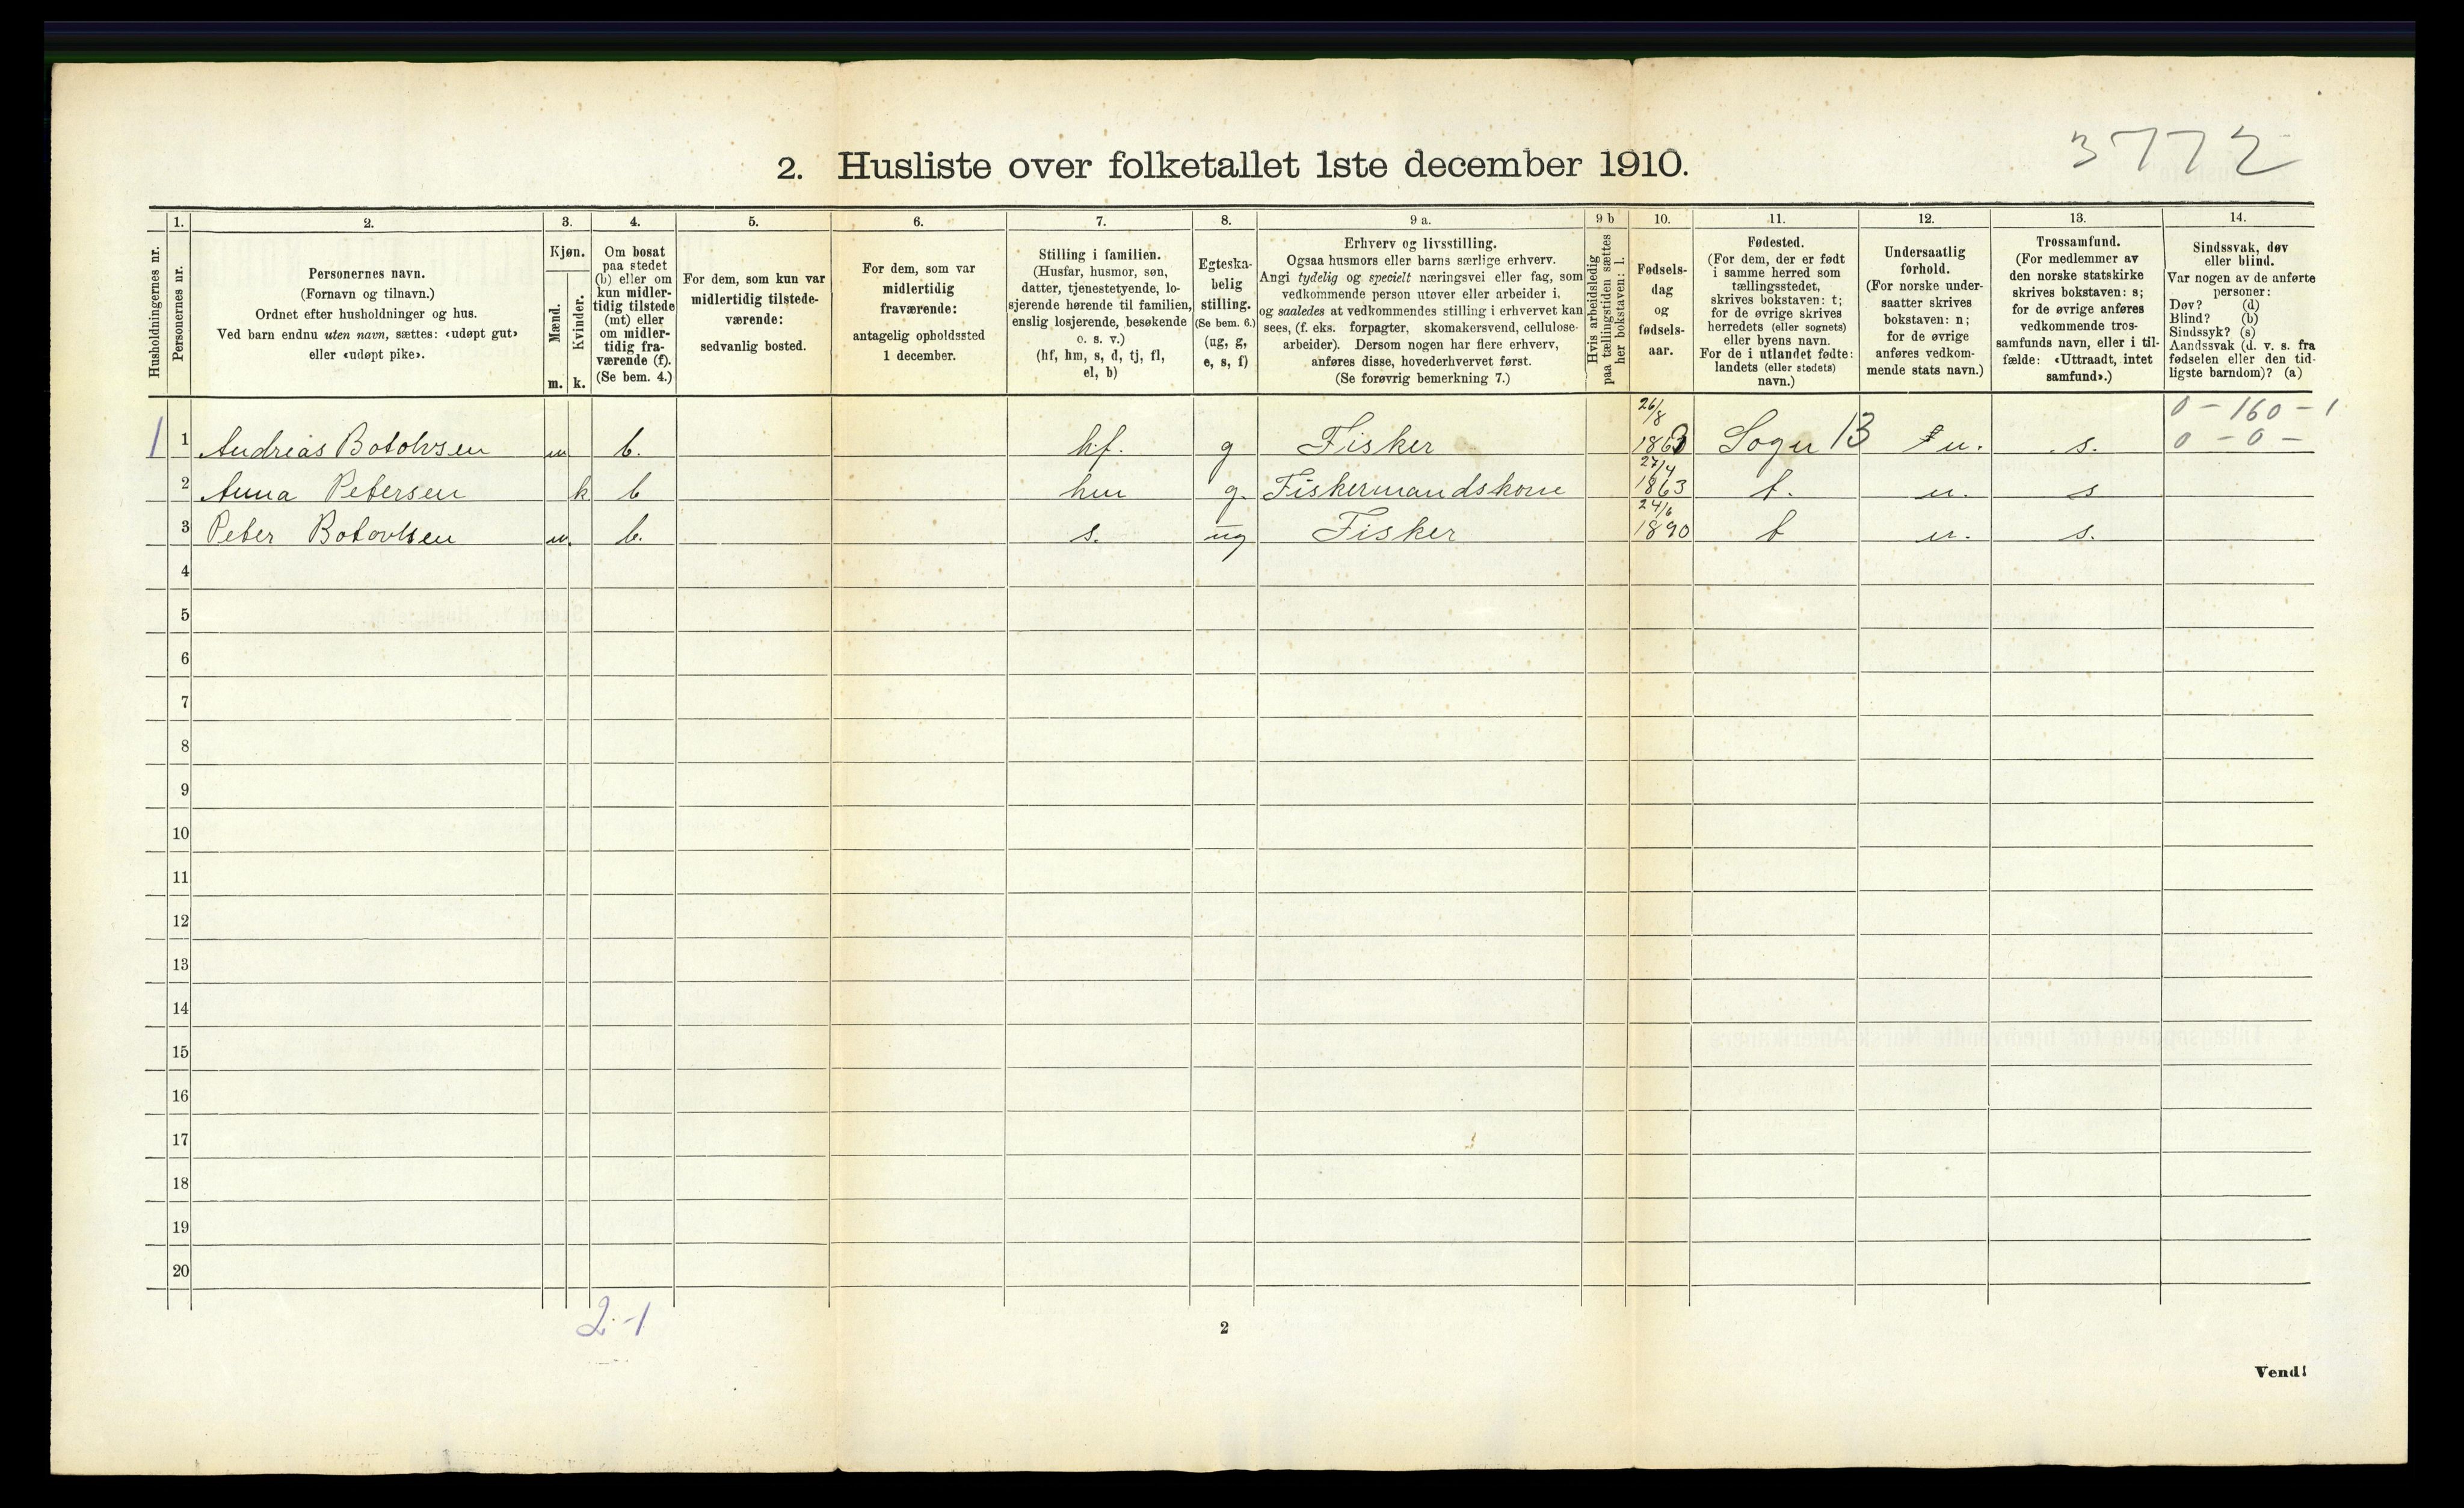 3772
2. Husliste over folketallet 1ste december 1910.
1. 2. 3. 4. 5. 6. 7. 8. 9 a. 9 b 10. 11. 12. 13. 14.
Husholdningernes nr.
Personernes nr.
Personernes navn.
(Fornavn og tilnavn.)
Ordnet efter husholdninger og hus.
Ved barn endnu uten navn, sættes: «udøpt gut»
eller «udøpt pike».
Kjøn.
Mænd.
Kvinder.
m. k.
Om bosat
paa stedet
(b) eller om
kun midler-
tidig tilstede
(mt) eller
om midler-
tidig fra-
værende (f).
(Se bem. 4.)
For dem, som kun var
midlertidig tilstede-
værende:
sedvanlig bosted.
For dem, som var
midlertidig
fraværende:
antagelig opholdssted
1 december.
Stilling i familien.
(Husfar, husmor, søn,
datter, tjenestetyende, lo-
sjerende hørende til familien,
enslig losjerende, besøkende
o. s. v.)
(hf, hm, s, d, tj, fl,
el, b)
Egteska-
belig
stilling.
(Se bem. 6.)
(ug, g,
e, s, f)
Erhverv og livsstilling.
Ogsaa husmors eller barns særlige erhverv.
Angi tydelig og specielt næringsvei eller fag, som
vedkommende person utøver eller arbeider i,
og saaledes at vedkommendes stilling i erhvervet kan
sees, (f. eks. forpagter, skomakersvend, cellulose-
arbeider). Dersom nogen har flere erhverv,
anføres disse, hovederhvervet først.
(Se forøvrig bemerkning 7.)
Hvis arbeidsledig
paa tællingstiden sættes
her bokstaven: l.
Fødsels-
dag
og
fødsels-
aar.
Fødested.
(For dem, der er født
i samme herred som
tællingsstedet,
skrives bokstaven: t;
for de øvrige skrives
herredets (eller sognets)
eller byens navn.
For de i utlandet fødte:
landets (eller stedets)
navn.)
Undersaatlig
forhold.
(For norske under-
saatter skrives
bokstaven: n;
for de øvrige
anføres vedkom-
mende stats navn.)
Trossamfund.
(For medlemmer av
den norske statskirke
skrives bokstaven: s;
for de øvrige anføres
vedkommende tros-
samfunds navn, eller i til-
fælde: «Uttraadt, intet
samfund».)
Sindssvak, døv
eller blind.
Var nogen av de anførte
personer:
Døv? (d)
Blind? (b)
Sindssyk? (s)
Aandssvak (d. v. s. fra
fødselen eller den tid-
ligste barndom)? (a)
26/8 0 - 160 - 1
1 1 Andreas Botolvsen m b. hf. g Fisker 1863 Sogn 13 n. s. 0 - 0 -
27/4
2 Anna Petersen k b hm g. Fiskermandskone 1863 t. n. s
24/6
3 Peter Botovlsen m. b. s. ug Fisker 1890 t n. s.
4
5
6
7
8
9
10
11
12
13
14
15
16
17
18
19
20
2-1
2
Vend!